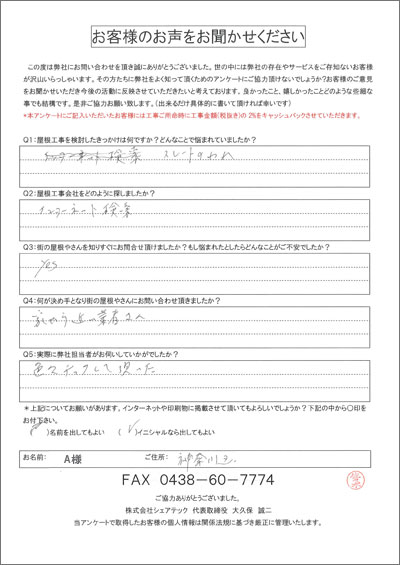 お客様のお声をお聞かせください
この度は弊社にお問い合わせを頂き誠にありがとうございました。世の中には弊社の存在やサービスをご存知ないお客様
が沢山いらっしゃいます。その方たちに弊社をよく知って頂くためのアンケートにご協力頂けないでしょうか?お客様のご意見
をお聞かせいただき今後の活動に反映させていただきたいと考えております。良かったこと、嬉しかったことどのような些細な
事でも結構です。是非ご協力お願い致します。(出来るだけ具体的に書いて頂ければ幸いです)
*本アンケートにご記入いただいたお客様には工事ご依頼時に工事金額(税抜き)の 2%をキャッシュバックさせていただきます。
Q1:屋根工事を検討したきっかけは何ですか?どんなことで悩まれていましたか?
検索 スレートのわれ
Q2:屋根工事会社をどのように探しましたか?
インターネート検索
Q3:街の屋根やさんを知りすぐにお問合せ頂けましたか?もし悩まれたとしたらどんなことがご不安でしたか?
YES
Q4:何が決め手となり街の屋根やさんにお問い合わせ頂きましたか?
Q5:実際に弊社担当者がお伺いしていかがでしたか?
色々チェックして頂った
*上記についてお願いがあります。インターネットや印刷物に掲載させて頂いてもよろしいでしょうか?下記の中から〇印を
お付下さい。
( )名前を出してもよい (✓)イニシャルなら出してもよい
お名前: A様 ご住所: 神奈川
FAX 0438-60-7774
ご協力ありがとうございました。
株式会社シェアテック 代表取締役 大久保 誠二
当アンケートで取得したお客様の個人情報は関係法規に基づき厳正に管理いたします。